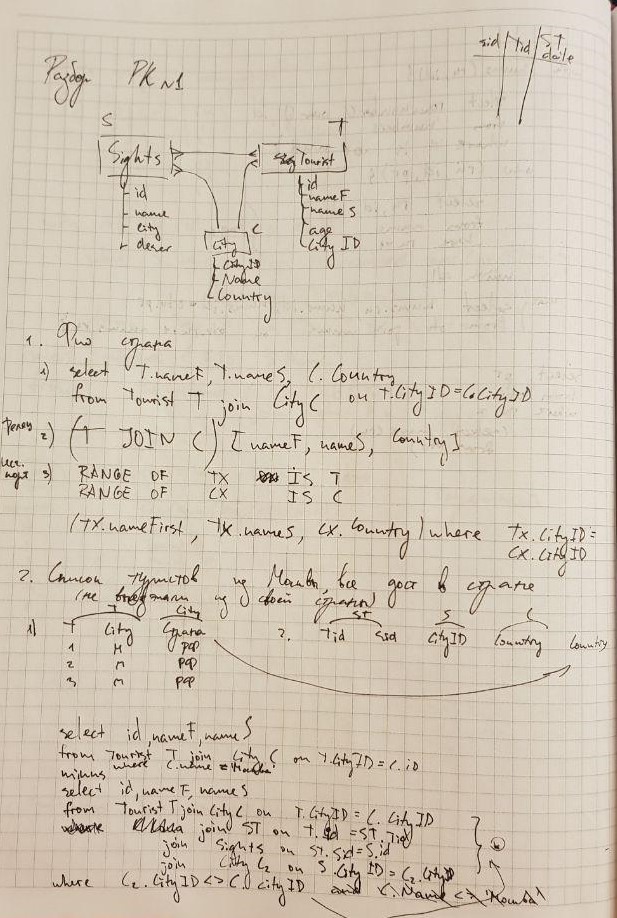 sid Tid ST
date
Разбор РК №1
S
T
Sights
Tourist
id
name
city
id
nameF
nameS
age
City ID
C
City
CityID
Name
Country
1. Фио страна
1) select T.nameF, T.nameS, C.Country
from Tourist T join City C on T.CityID=C.CityID
2) (T JOIN C) [nameF, nameS, Country]
3) RANGE OF TX IS T
RANGE OF CX IS C
(TX.nameFirst, TX.nameS, CX.Country) where TX.CityID=
CX.CityID
2. Список туристов из Москвы, все дост в стране
(не выезжали из своей страны)
T City ST S C
1) T City Страна 2. Tid Sid CityID Country Country
1 М РФ
2 М РФ
3 М РФ
select id, nameF, nameS
from Tourist T join City C on T.CityID=C.ID
where C.name = 'Москва'
minus
select id, nameF, nameS
from Tourist T join City C on T.CityID = C.CityID
join ST on T.id=ST.Tid
join Sights on ST.Sid=S.id
join City C2 on S.CityID=C2.CityID
where C2.CityID<>C.CityID and C.Name <> 'Москва'